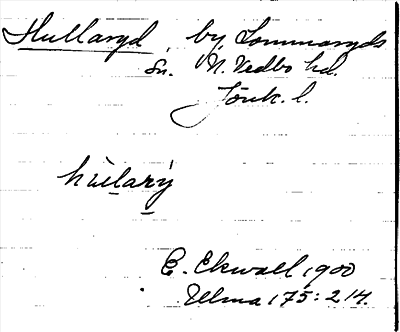 Hullaryd, by, Lommaryds
sn. N. Vedbo hd.
Jönk. l.
hùlarý
E. Ekwall 1900
Ulma 175:214.